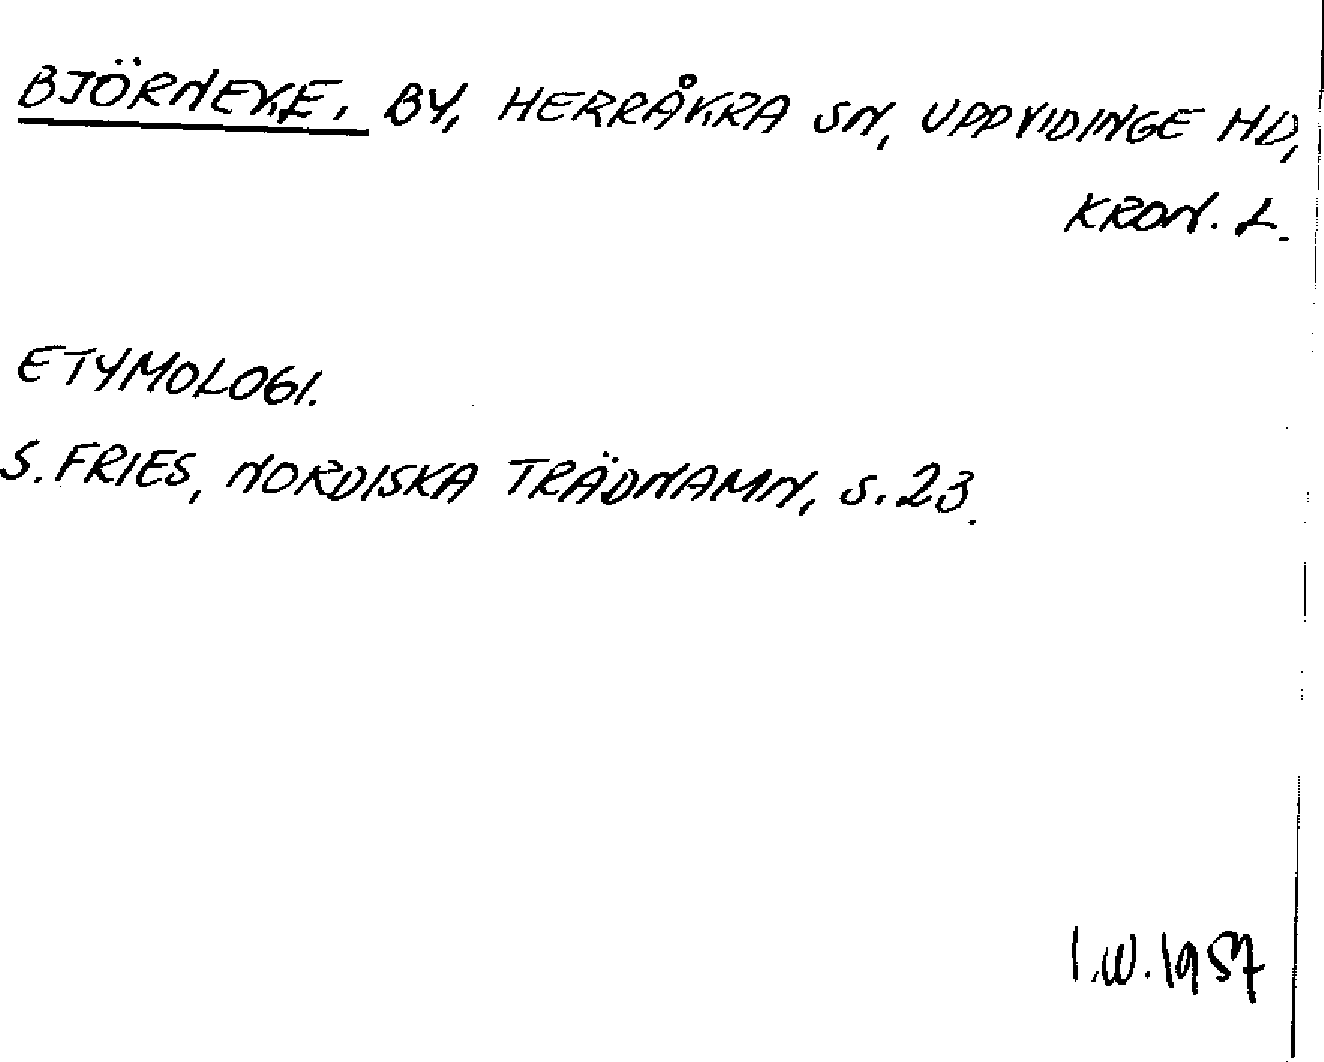 BJÖRNEKE, BY, HERRÅKRA SN, UPPVIDINGE HD,
KRON. L.
ETYMOLOGI.
S. FRIES, NORDISKA TRÄDNAMN, S. 23.
I.W. 1957